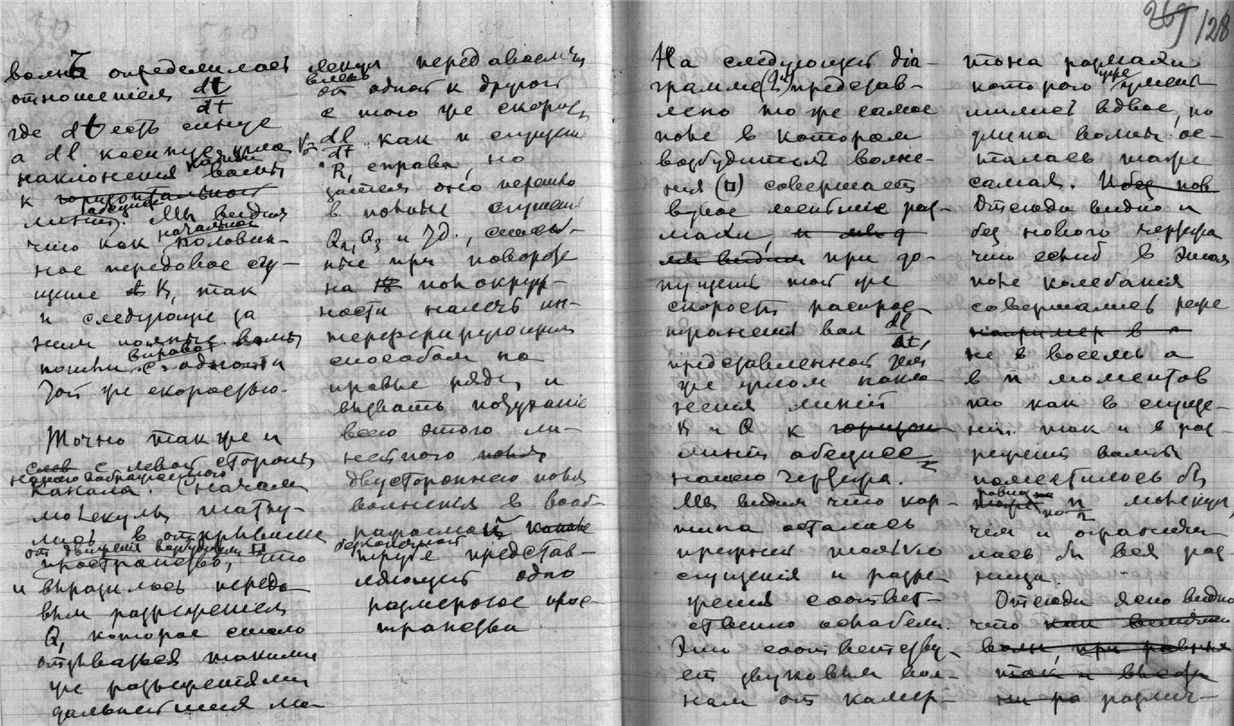 волны определилась
отношением dt
dt
где dt есть синус
а dl косинус угла
наклонения нашей волны
к горизонтальной
линии абсцисс. Мы видим
что как начальное половин-
ное передовое сгу-
щение R, так
и следующие за
ним полные волны
пошли вправо с одной и
той же скоростью.
Точно так же и
слев с левой стороны
нашего воображаемого
канала. (начали
молекулы
лись в открывшееся
от движения вибратора □
пространство, что
и выразилось передо-
вым разрежением
Q, которое стало
такими
же разрежениями
дальнейшими мо-
лекул передаваемых
влево
от одной к другой
с тою же скорос
v= dl
dt как и сгущен
R, справа, но
затем оно перешло
в полные сгущения
Q₁, Q₃ и т.д.,
ные при повороте
на по окруж-
ности налечь ин-
терферирующим
способом на
правые ряды и
вызвать получение
всего этого ли-
нейного
двустороннего поля
волнения в вооб-
ражаемой канале
бесконечной
трубе представ-
ляющей одно
размерное прос-
транство.
269 128
На следующей діа-
грамме (2) представ-
лено то же самое
поле в котором
возбудитель волне-
ния (□) совершает
вдвое меньшие раз-
махи, и мы д
мы видим при до-
пущении той же
скорости распрос-
транения волн dl
dt,
представленной тем
же углом накло-
нения линий
R и Q к горизон
линии абсцисс
нашего чертежа.
Мы видим что кар-
тина осталась
прежней только
сгущения и разре-
жения соответ-
ственно ослабели.
Это соответству-
ет звуковым вол-
нам от камер-
тона размахи
которого уже умень-
шились вдвое, но
длина волны ос-
талась та же
самая. И без нов
Отсюда видно и
без нового чертежа
что если б в этом
поле колебания
совершались реже
например в
не в восемь а
в n моментов
то как в сгуще-
нии так и в раз-
режении волны
поместилось бы
равно
по n молекул,
чем и ограничи
лась бы вся раз
ница.
Отсюда ясно видно
что как величина
волн, при равных
так и
ни ра различ-